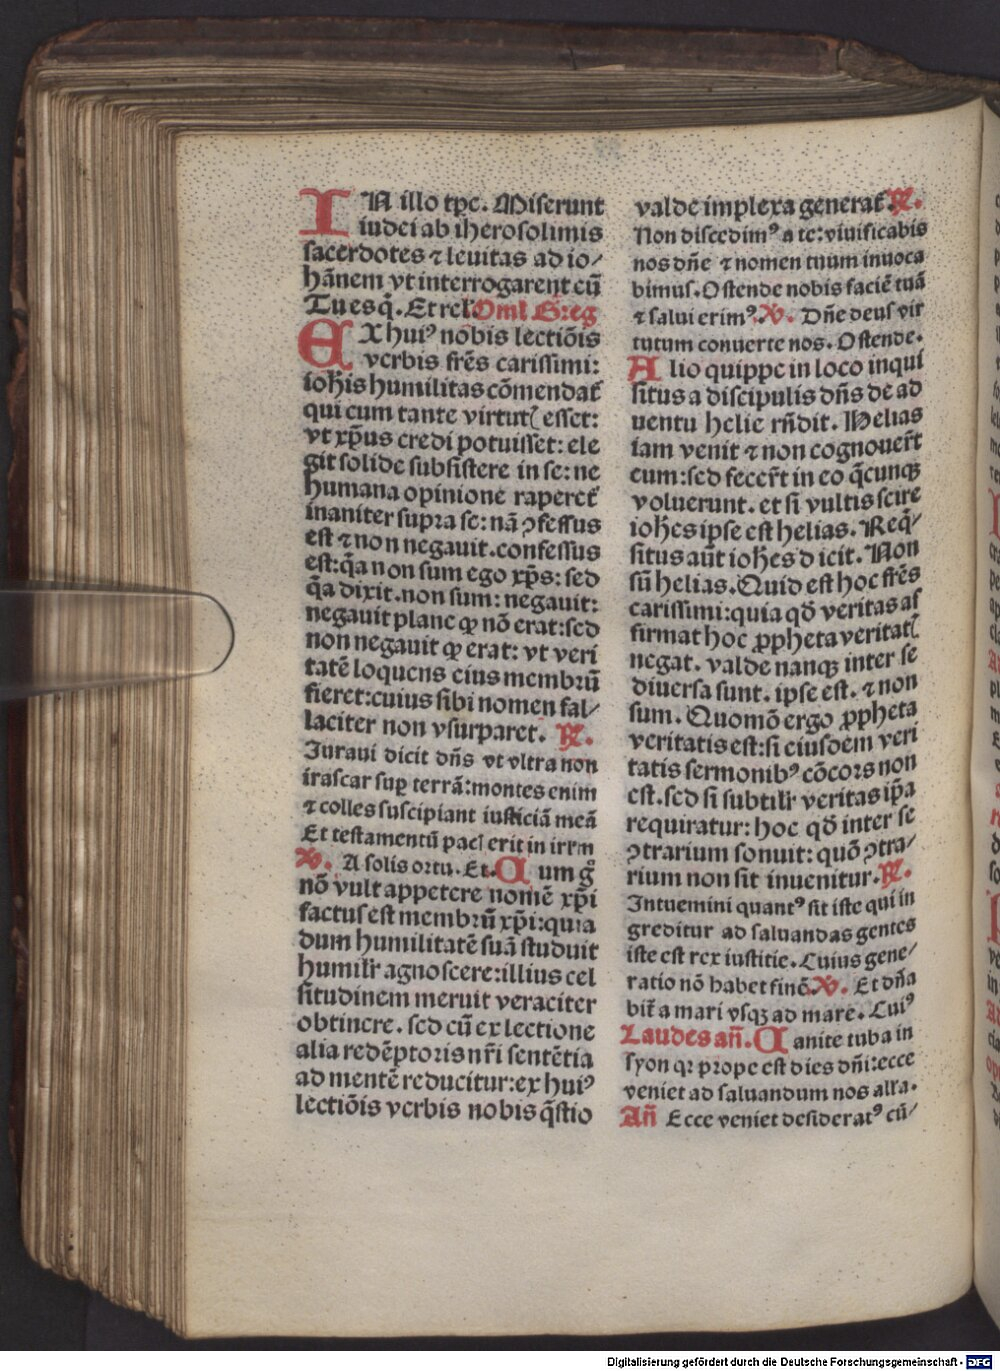 IN illo tp̄e. Miserunt
iudei ab iherosolimis
sacerdotes ⁊ leuitas ad io⸗
hānem vt interrogarent eū
Tu es q̄. Et rel̄. Oml̄ Greg
EX hui⁹ nobis lectiōis
verbis fr̄es carissimi:
ioh̄is humilitas cōmendat᷑
qui cum tante virtut᷑ esset:
vt xp̄us credi potuisset: ele
git solide subsistere in se: ne
humana opinione raperet᷑
inaniter supra se: nā ꝯfessus
est ⁊ non negauit. confessus
est: q̄a non sum ego xp̄s: sed
q̄a dixit. non sum: negauit:
negauit plane ꝙ nō erat: sed
non negauit ꝙ erat: vt veri
tatē loquens eius membrū
fieret: cuius sibi nomen fal⸗
laciter non vsurparet. ℟.
Juraui dicit dn̄s vt vltra non
irascar suꝑ terrā: montes enim
⁊ colles suscipiant iusticiā meā
Et testamentū pac᷑ erit in irl̄m
℣. A solis ortu. Et. Cum g̊
nō vult appetere nomē xp̄i
factus est membrū xp̄i: quia
dum humilitatē suā studuit
humilr̄ agnoscere: illius cel
situdinem meruit veraciter
obtinere. sed cū ex lectione
alia redēptoris nr̄i sentētia
ad mentē reducitur: ex hui⁹
lectiōis verbis nobis q̄stio
valde implexa generat᷑. ℟.
Non discedim⁹ a te: viuificabis
nos dn̄e ⁊ nomen tuum inuoca
bimus. Ostende nobis faciē tuā
⁊ salui erim⁹. ℣. Dn̄e deus vir
tutum conuerte nos. Ostende.
Alio quippe in loco inqui
situs a discipulis dn̄s de ad
uentu helie rn̄dit. Helias
iam venit ⁊ non cognouer̄t
eum: sed fecer̄t in eo q̄cunqꝫ
voluerunt. et si vultis scire
ioh̄es ipse est helias. Req̄⸗
situs aūt ioh̄es dicit. Non
sū helias. Quid est hoc fr̄es
carissimi: quia qd̄ veritas af
firmat hoc ꝓpheta veritat᷑
negat. valde nanqꝫ inter se
diuersa sunt. ipse est. ⁊ non
sum. Quomō ergo ꝓpheta
veritatis est: si eiusdem veri
tatis sermonib⁹ cōcors non
est. sed si subtilr̄ veritas ip̄a
requiratur: hoc qd̄ inter se
ꝯtrarium sonuit: quō ꝯtra⸗
rium non sit inuenitur. ℟.
Intuemini quant⁹ sit iste qui in
greditur ad saluandas gentes
iste est rex iustitie. Cuius gene⸗
ratio nō habet finē. ℣. Et dn̄a
bit᷑ a mari vsqꝫ ad mare. Cui⁹
Laudes an̄. Canite tuba in
syon qꝛ prope est dies dn̄i: ecce
veniet ad saluandum nos alla.
An̄ Ecce veniet desiderat⁹ cū⸗
Digitalisierung gefördert durch die Deutsche Forschungsgemeinschaft - DFG